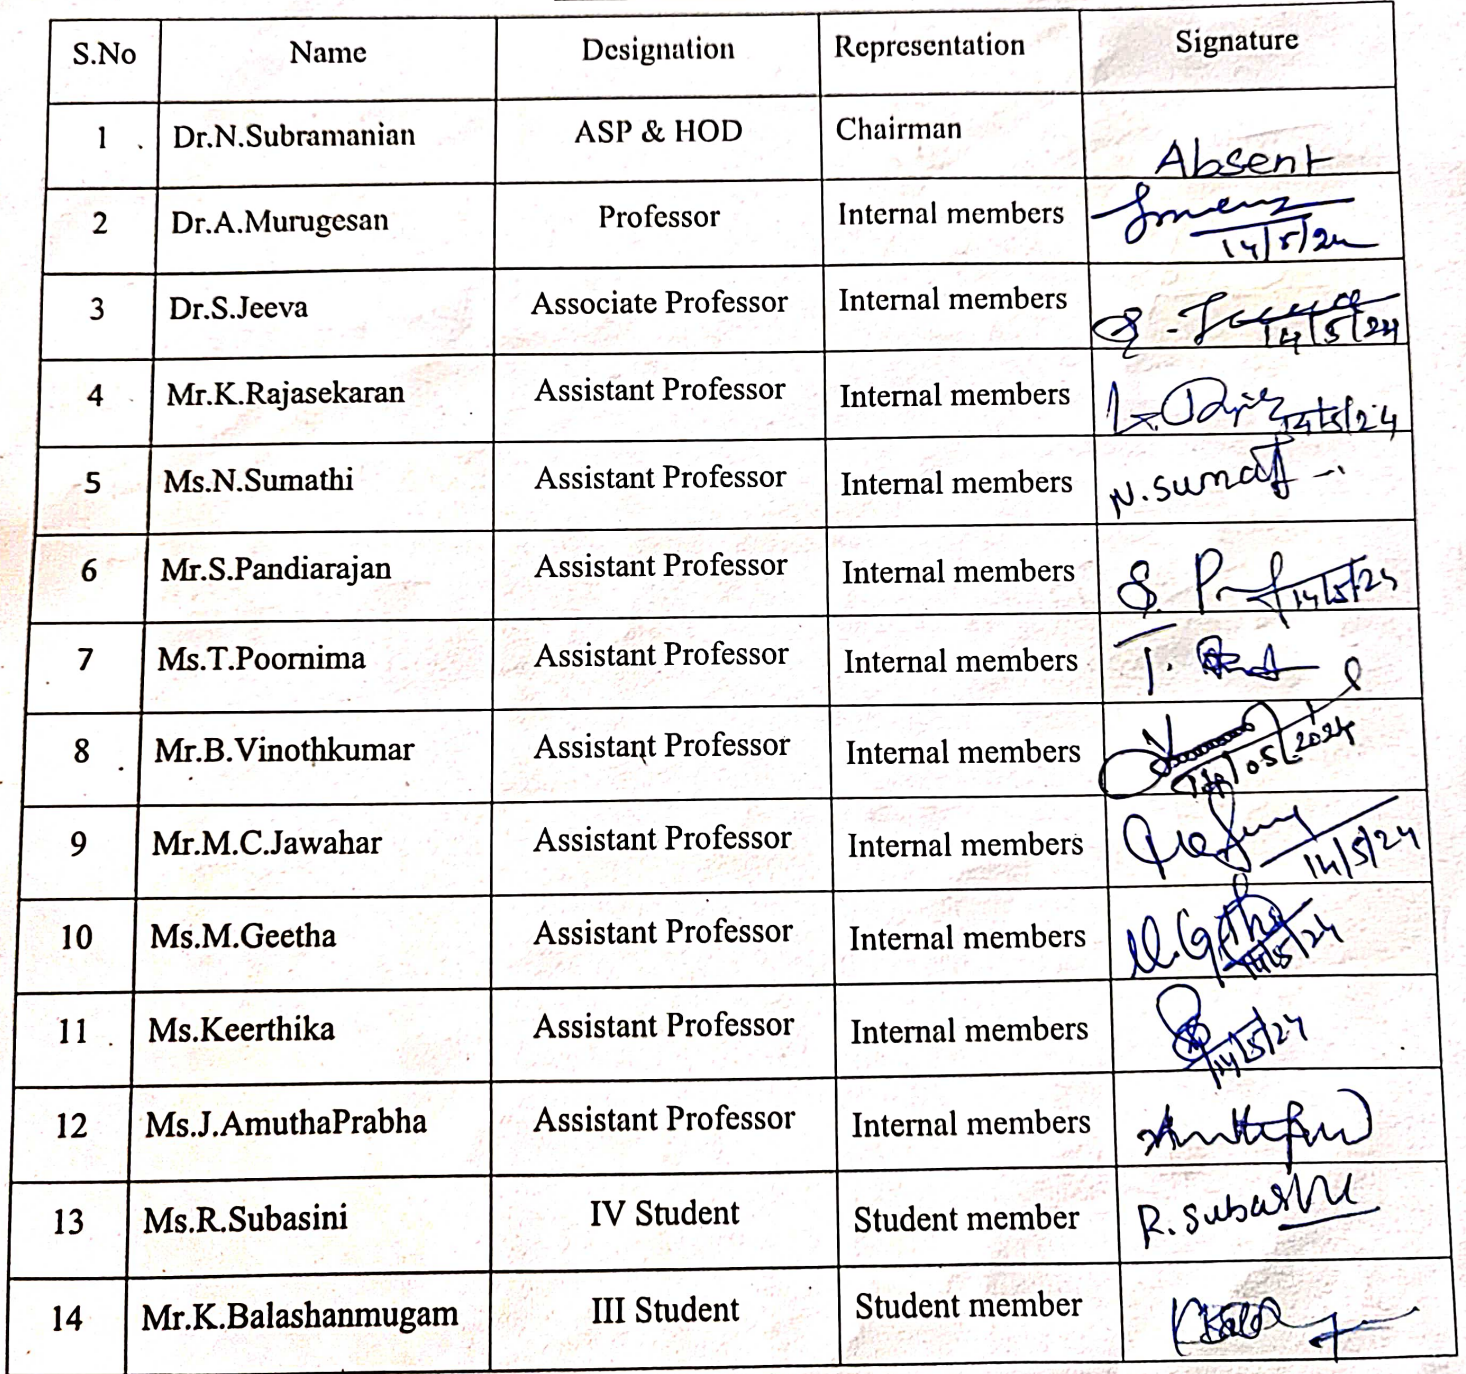 S.No Name Designation Representation Signature
1 Dr.N.Subramanian ASP & HOD Chairman Absent
2 Dr.A.Murugesan Professor Internal members 14/5/24
3 Dr.S.Jeeva Associate Professor Internal members 14/5/24
4 Mr.K.Rajasekaran Assistant Professor Internal members 14/5/24
5 Ms.N.Sumathi Assistant Professor Internal members N.Sumathi
6 Mr.S.Pandiarajan Assistant Professor Internal members 14/5/24
7 Ms.T.Poornima Assistant Professor Internal members
8 Mr.B.Vinothkumar Assistant Professor Internal members 14/05/2024
9 Mr.M.C.Jawahar Assistant Professor Internal members 14/5/24
10 Ms.M.Geetha Assistant Professor Internal members M.Geetha 14/5/24
11 Ms.Keerthika Assistant Professor Internal members 14/5/24
12 Ms.J.AmuthaPrabha Assistant Professor Internal members
13 Ms.R.Subasini IV Student Student member R.Subashi
14 Mr.K.Balashanmugam III Student Student member